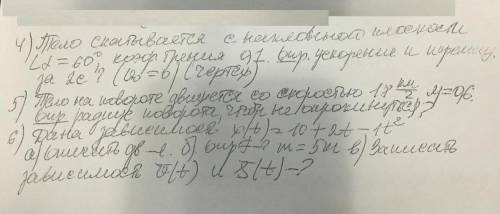 4) Тело скатывается с наклонной плоскости
∠α = 60°, коэф трения 0,1. опр. ускорение и перемещ.
за 2с? (υ₀ = 0) (чертёж)
5) Тело на повороте движется со скоростью 18 км/ч μ = 0,6.
опр радиус поворота, чтоб не опрокинуться?
6) Дана зависимость x(t) = 10 + 2t - 1t²
а) описать дв-е. б) опр F-? m = 5 кг в) Записать
зависимость υ(t) и S(t) - ?